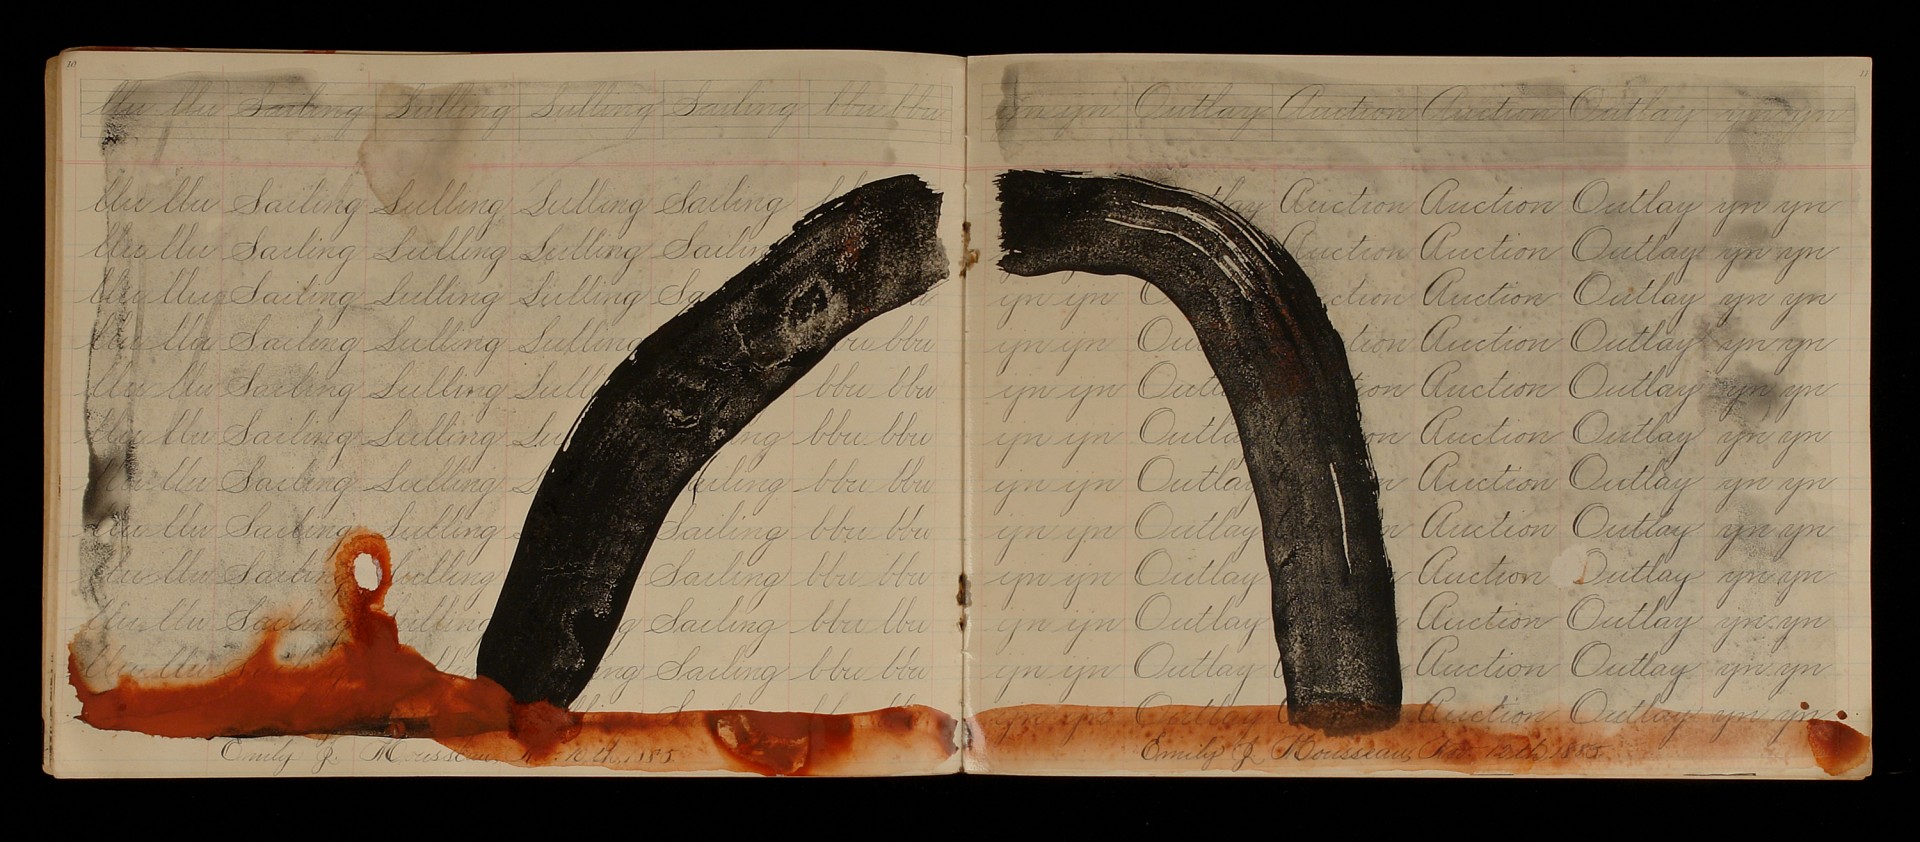 10
llu llu Sailing Lulling Lulling Sailing bbu bbu
llu llu Sailing Lulling Lulling Sailing
llu llu Sailing Lulling Lulling Sailin
llu llu Sailing Lulling Lulling Sa
llu llu Sailing Lulling Lulling bbu bbu
llu llu Sailing Lulling Lull bbu bbu
llu llu Sailing Lulling Lu ng bbu bbu
llu llu Sailing Lulling ailing bbu bbu
llu llu Sailing Lulling Sailing bbu bbu
llu llu Sailing Lulling Sailing bbu bbu
llu llu Sailing Lulling g Sailing bbu bbu
llu llu ng Sailing bbu bbu
Emily J. Rousseau, Nov. 10th, 1885.
11
yn yn Outlay Auction Auction Outlay yn yn
lay Auction Auction Outlay yn yn
Auction Auction Outlay yn yn
yn yn O ction Auction Outlay yn yn
yn yn Ou tion Auction Outlay yn yn
yn yn Out on Auction Outlay yn yn
yn yn Outla on Auction Outlay yn yn
yn yn Outlay n Auction Outlay yn yn
yn yn Outlay Auction Outlay yn yn
yn yn Outlay Auction Outlay yn yn
yn yn Outlay Auction Outlay yn yn
yn yn Outlay Auction Outlay yn yn
yn yn Outlay Auction Outlay yn yn
Emily J. Rousseau, Nov. 12th, 1885.